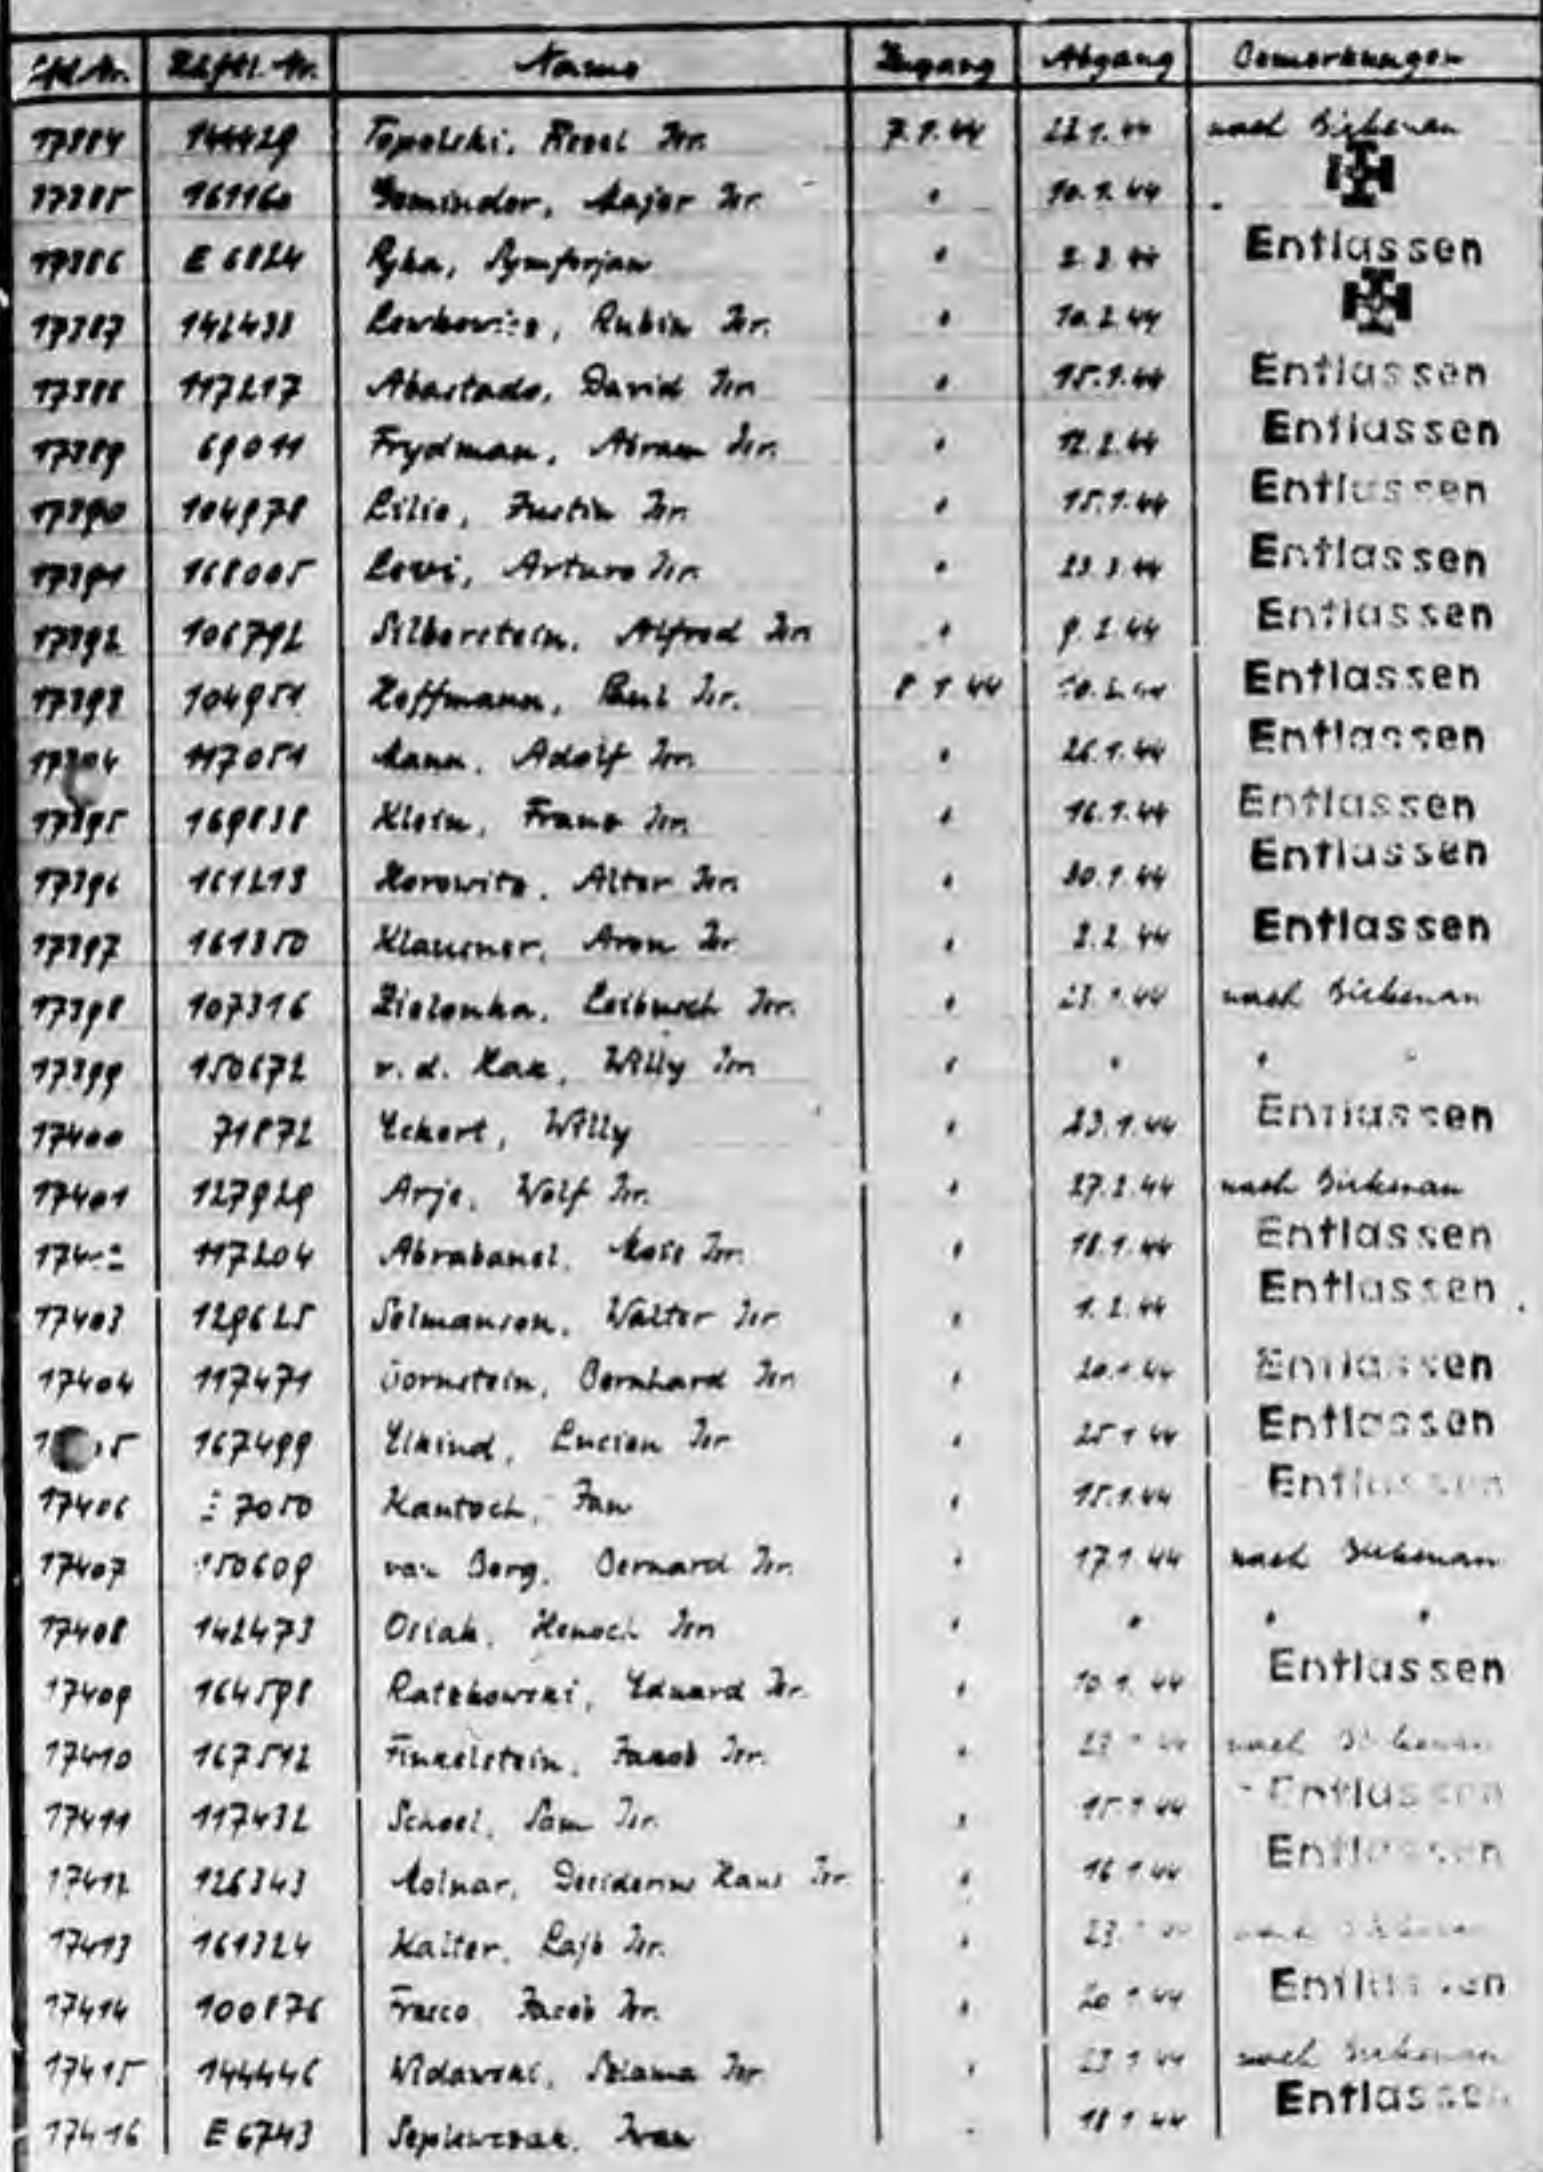 Lfd.Nr. Häftl.Nr. Name Zugang Abgang Bemerkungen
17384 144429 Topolski, Isr. 7.1.44 22.1.44 nach Birkenau
17385 161160 Gominder, Majer Isr. " 10.1.44
17386 E 6824 Ryka, Symforjan " 2.2.44 Entlassen
17387 142438 Lewkowicz, Rubin Isr. " 10.2.44
17388 117217 Abastado, David Isr. " 15.1.44 Entlassen
17389 69011 Frydman, Abram Isr. " 12.2.44 Entlassen
17390 104978 Lilie, Justin Isr. " 15.1.44 Entlassen
17391 168005 Levi, Arturo Isr. " 23.3.44 Entlassen
17392 106792 Silberstein, Alfred Isr. " 9.2.44 Entlassen
17393 104951 Hoffmann, Paul Isr. 8.1.44 10.2.44 Entlassen
17394 117051 Mann, Adolf Isr. " 26.1.44 Entlassen
17395 169838 Klein, Franz Isr. " 16.1.44 Entlassen
17396 161213 Horowitz, Alter Isr. " 30.1.44 Entlassen
17397 161350 Klausner, Aron Isr. " 2.2.44 Entlassen
17398 107316 Zielonka, Leibusch Isr. " 23.1.44 nach Birkenau
17399 150672 v. d. Hak, Willy Isr. " " " "
17400 71872 Eckert, Willy " 23.1.44 Entlassen
17401 127929 Arje, Wolf Isr. " 27.2.44 nach Birkenau
117204 Abrabanel, Isr. " 18.1.44 Entlassen
17403 129625 Selmanson, Walter Isr. " 1.2.44 Entlassen
17404 117471 Bornstein, Bernhard Isr. " 20.1.44 Entlassen
167499 Elkind, Lucien Isr. " 25.1.44 Entlassen
17406 7050 Kantoch, Jan " 15.1.44 Entlassen
17407 150609 van Berg, Bernard Isr. " 17.1.44 nach Birkenau
17408 142473 Osiak, Henoch Isr. " " " "
17409 164598 Ratzkowski, Eduard Isr. " 10.1.44 Entlassen
17410 167512 Finkelstein, Jakob Isr. " nach Birkenau
17411 117432 Scheel, Sam Isr. " 15.1.44 Entlassen
17412 126343 Molnar, Desiderius Hans Isr. " 16.1.44 Entlassen
17413 161324 Kalter, Lajb Isr. "
17414 100876 Fresco Jacob Isr. " 20.1.44 Entlassen
17415 144446 Widawski, Szlama Isr. " 23.1.44 nach Birkenau
17416 E 6743 Iwan 18.1.44 Entlassen